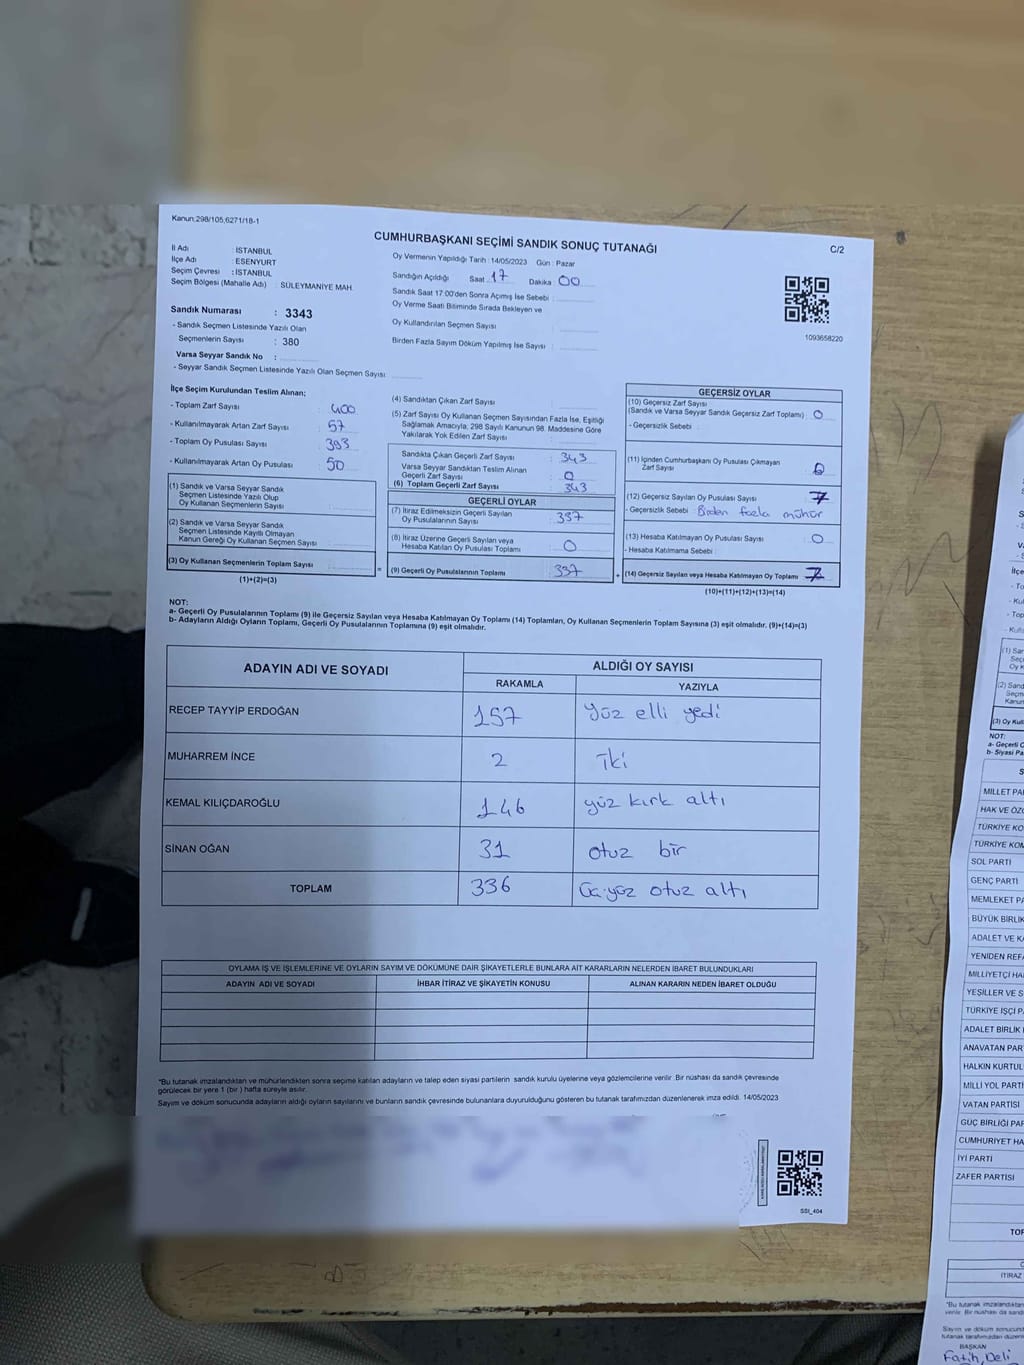 Kanun:298/105,6271/18-1
CUMHURBAŞKANI SEÇİMİ SANDIK SONUÇ TUTANAĞI
C/2
İl Adı : İSTANBUL
İlçe Adı : ESENYURT
Seçim Çevresi : İSTANBUL
Seçim Bölgesi (Mahalle Adı) : SÜLEYMANİYE MAH.
Oy Vermenin Yapıldığı Tarih : 14/05/2023 Gün : Pazar
Sandığın Açıldığı Saat : 17 Dakika : 00
Sandık Saat 17:00'den Sonra Açımış İse Sebebi :
Oy Verme Saati Bitiminde Sırada Bekleyen ve
Oy Kullandırılan Seçmen Sayısı :
Birden Fazla Sayım Döküm Yapılmış İse Sayısı :
1093658220
Sandık Numarası : 3343
- Sandık Seçmen Listesinde Yazılı Olan
Seçmenlerin Sayısı : 380
Varsa Seyyar Sandık No :
- Seyyar Sandık Seçmen Listesinde Yazılı Olan Seçmen Sayısı:
İlçe Seçim Kurulundan Teslim Alınan;
- Toplam Zarf Sayısı : 400
- Kullanılmayarak Artan Zarf Sayısı : 57
- Toplam Oy Pusulası Sayısı : 393
- Kullanılmayarak Artan Oy Pusulası : 50
(1) Sandık ve Varsa Seyyar Sandık
Seçmen Listesinde Yazılı Olup
Oy Kullanan Seçmenlerin Sayısı :
(2) Sandık ve Varsa Seyyar Sandık
Seçmen Listesinde Kayıtlı Olmayan
Kanun Gereği Oy Kullanan Seçmen Sayısı :
(3) Oy Kullanan Seçmenlerin Toplam Sayısı :
(1)+(2)=(3)
(4) Sandıktan Çıkan Zarf Sayısı :
(5) Zarf Sayısı Oy Kullanan Seçmen Sayısından Fazla İse, Eşitliği
Sağlamak Amacıyla; 298 Sayılı Kanunun 98. Maddesine Göre
Yakılarak Yok Edilen Zarf Sayısı :
Sandıkta Çıkan Geçerli Zarf Sayısı : 343
Varsa Seyyar Sandıktan Teslim Alınan
Geçerli Zarf Sayısı : 0
(6) Toplam Geçerli Zarf Sayısı : 343
GEÇERLİ OYLAR
(7) İtiraz Edilmeksizin Geçerli Sayılan
Oy Pusulalarının Sayısı : 337
(8) İtiraz Üzerine Geçerli Sayılan veya
Hesaba Katılan Oy Pusulası Toplamı : 0
= (9) Geçerli Oy Pusulalarının Toplamı : 337
GEÇERSİZ OYLAR
(10) Geçersiz Zarf Sayısı
(Sandık ve Varsa Seyyar Sandık Geçersiz Zarf Toplamı) : 0
- Geçersizlik Sebebi :
(11) İçinden Cumhurbaşkanı Oy Pusulası Çıkmayan
Zarf Sayısı : 0
(12) Geçersiz Sayılan Oy Pusulası Sayısı : 7
- Geçersizlik Sebebi : Birden fazla mühür
(13) Hesaba Katılmayan Oy Pusulası Sayısı : 0
- Hesaba Katılmama Sebebi :
+ (14) Geçersiz Sayılan veya Hesaba Katılmayan Oy Toplamı : 7
(10)+(11)+(12)+(13)=(14)
NOT:
a- Geçerli Oy Pusulalarının Toplamı (9) ile Geçersiz Sayılan veya Hesaba Katılmayan Oy Toplamı (14) Toplamları, Oy Kullanan Seçmenlerin Toplam Sayısına (3) eşit olmalıdır. (9)+(14)=(3)
b- Adayların Aldığı Oyların Toplamı, Geçerli Oy Pusulalarının Toplamına (9) eşit olmalıdır.
ADAYIN ADI VE SOYADI
ALDIĞI OY SAYISI
RAKAMLA YAZIYLA
RECEP TAYYİP ERDOĞAN 157 yüz elli yedi
MUHARREM İNCE 2 iki
KEMAL KILIÇDAROĞLU 146 yüz kırk altı
SİNAN OĞAN 31 otuz bir
TOPLAM 336 Üçyüz otuz altı
OYLAMA İŞ VE İŞLEMLERİNE VE OYLARIN SAYIM VE DÖKÜMÜNE DAİR ŞİKAYETLERLE BUNLARA AİT KARARLARIN NELERDEN İBARET BULUNDUKLARI
ADAYIN ADI VE SOYADI İHBAR İTİRAZ VE ŞİKAYETİN KONUSU ALINAN KARARIN NEDEN İBARET OLDUĞU
*Bu tutanak imzalandıktan ve mühürlendikten sonra seçime katılan adayların ve talep eden siyasi partilerin sandık kurulu üyelerine veya gözlemcilerine verilir. Bir nüshası da sandık çevresinde
görülecek bir yere 1 (bir ) hafta süreyle asılır.
Sayım ve döküm sonucunda adayların aldığı oyların sayılarını ve bunların sandık çevresinde bulunanlara duyurulduğunu gösteren bu tutanak tarafımızdan düzenlenerek imza edildi. 14/05/2023
SSI_404
İlçe
(1) San
(2) Sand
Kanun
(3) Oy Kull
NOT:
a- Geçerli O
b- Siyasi Pa
MİLLET PA
HAK VE ÖZ
TÜRKİYE KO
TÜRKİYE KOM
SOL PARTİ
GENÇ PARTİ
MEMLEKET PA
BÜYÜK BİRLİK
ADALET VE KA
YENİDEN REFA
MİLLİYETÇİ HA
YEŞİLLER VE S
TÜRKİYE İŞÇİ P
ADALET BİRLİK
ANAVATAN PAR
HALKIN KURTUL
MİLLİ YOL PARTİ
VATAN PARTİSİ
GÜÇ BİRLİĞİ PAR
CUMHURİYET HA
İYİ PARTİ
ZAFER PARTİSİ
TOP
İTİRAZ
*Bu tutanak imzalandıktan
verilir. Bir nüshası da sand
Sayım ve döküm sonucund
tutanak tarafımızdan düzenle
BAŞKAN
Fatih Deli